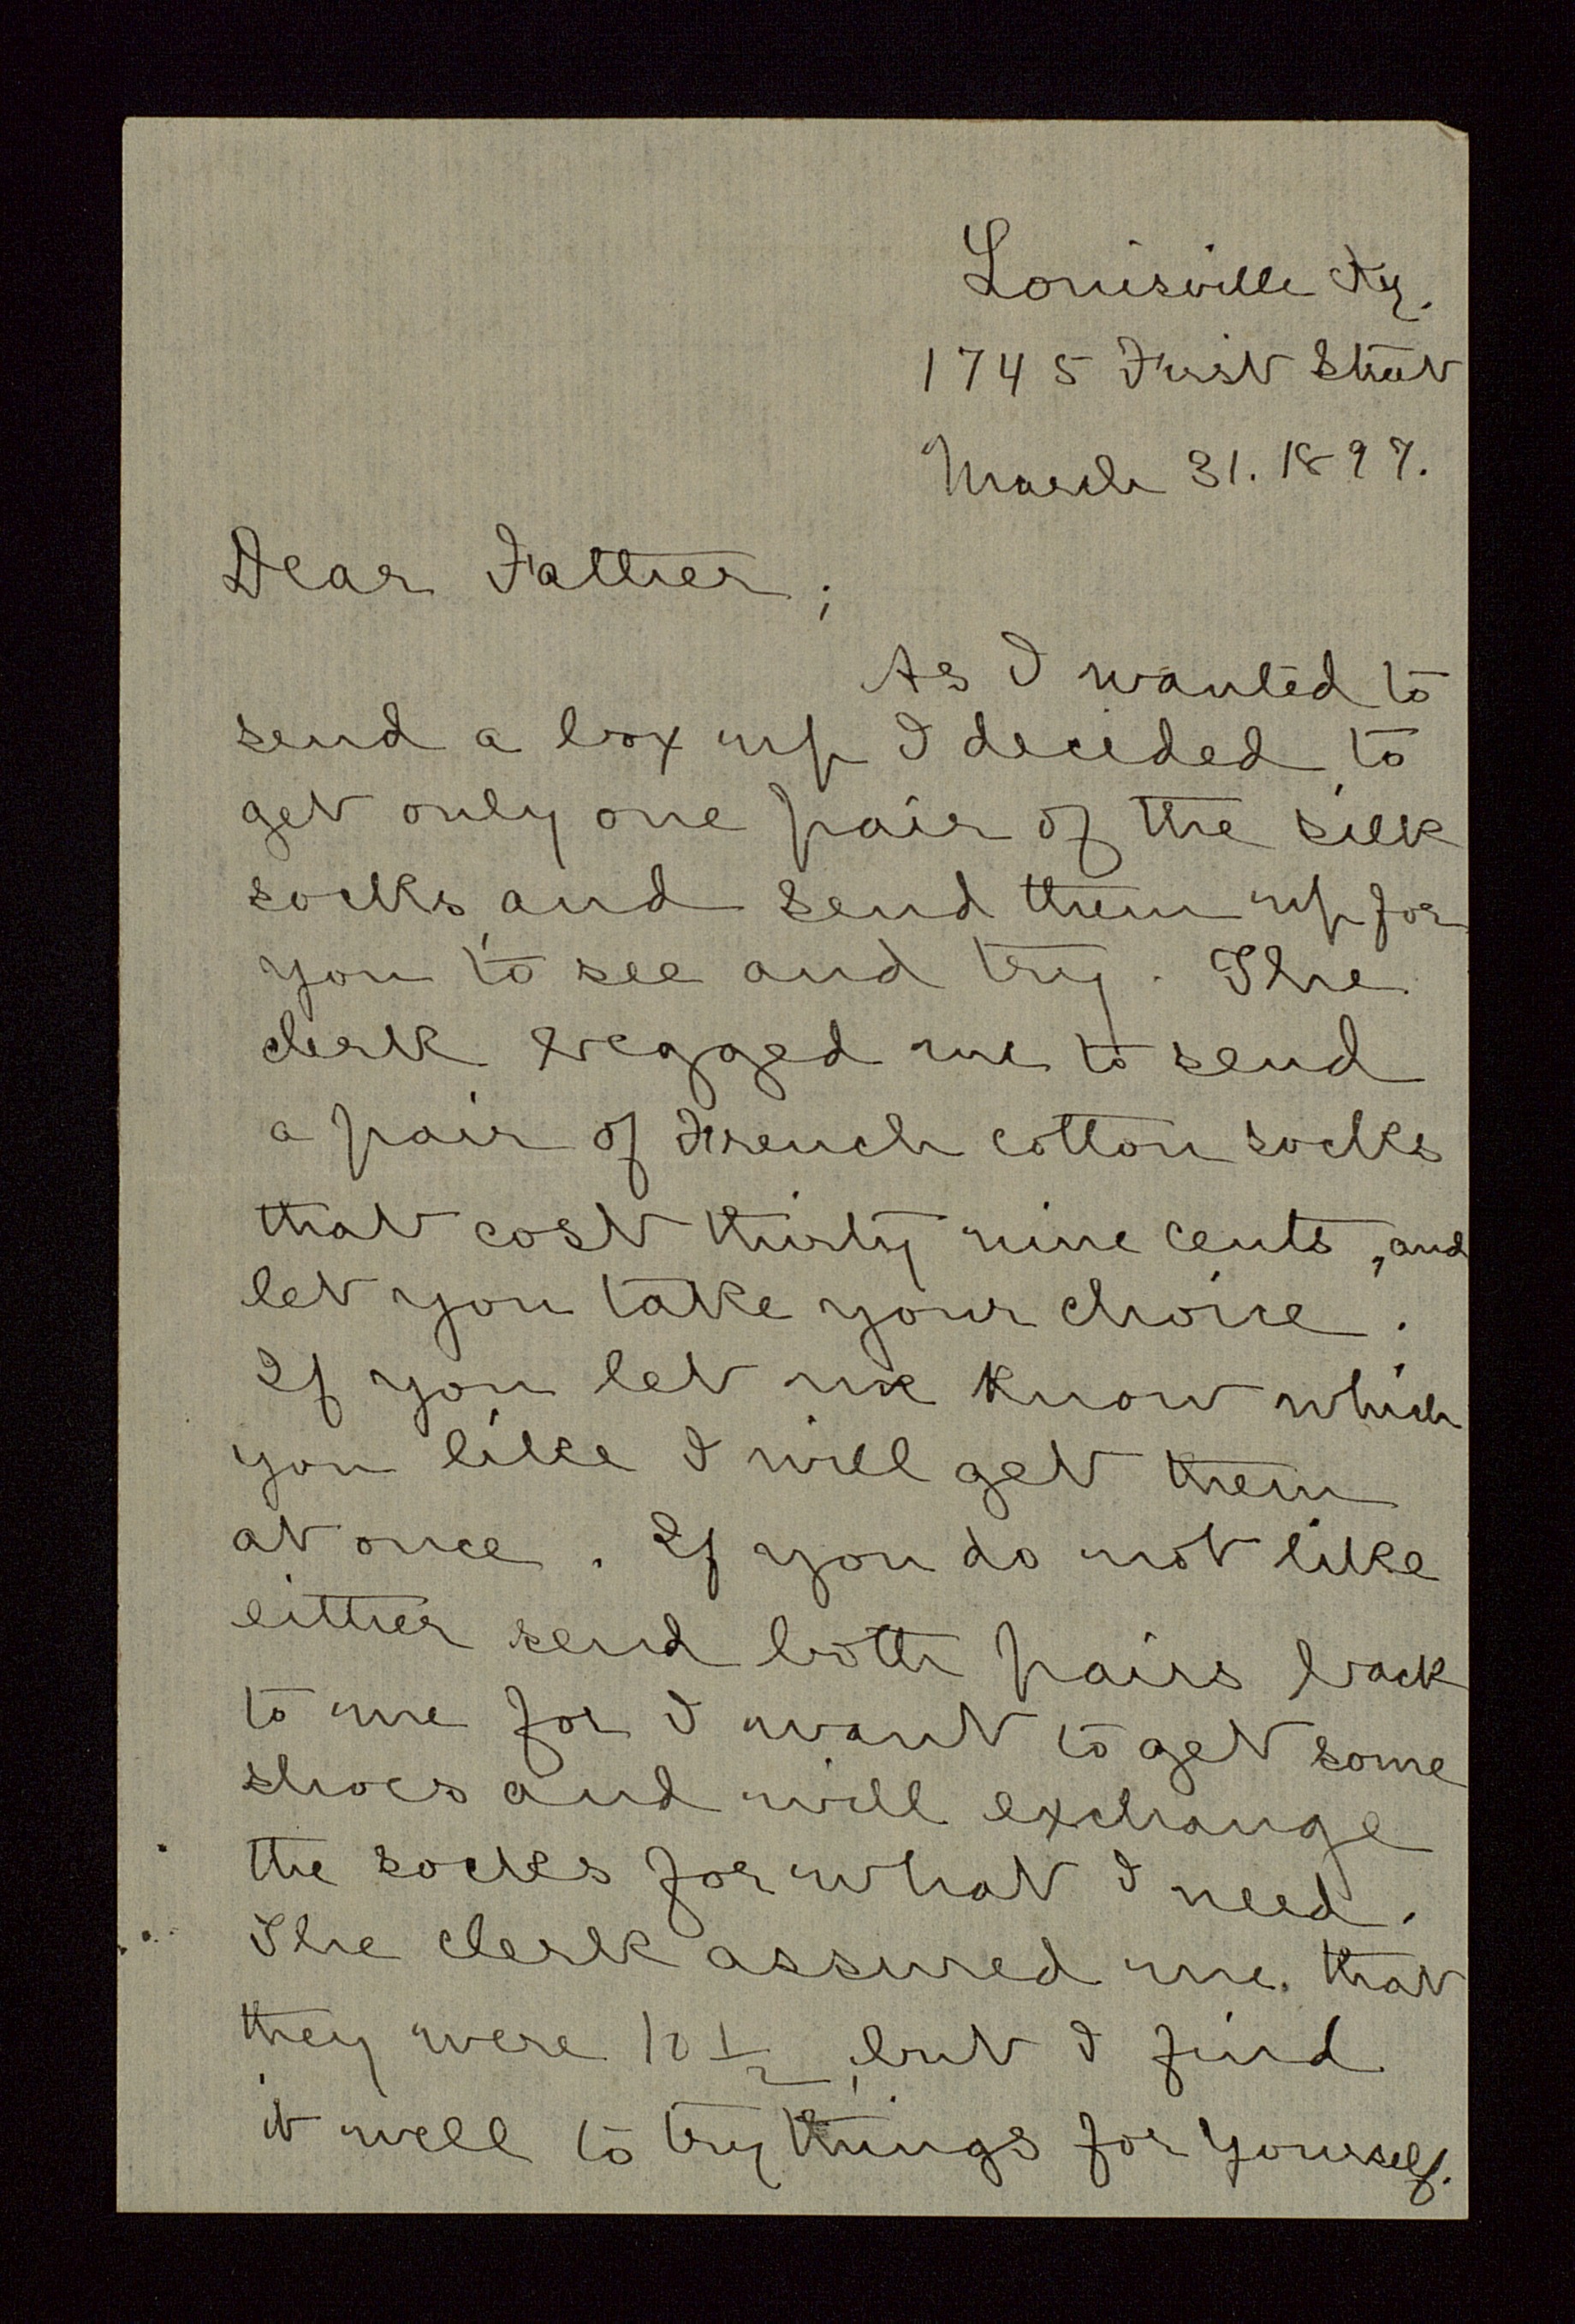 Louisville Ky.
1745 First Street
March 31. 1897.
Dear Father;
As I wanted to
send a box up I decided to
get only one pair of the silk
socks, and send them up for
you to see and try. The
clerk begged me to send
a pair of French cotton socks
that cost thirty nine cents, and
let you take your choice.
If you let me know which
you like I will get them
at once. If you do not like
either send both pairs back
to me for I want to get some
shoes and will exchange
the socks for what I need.
The clerk assured me that
they were 10 1/2, but I find
it well to try things for yourself.